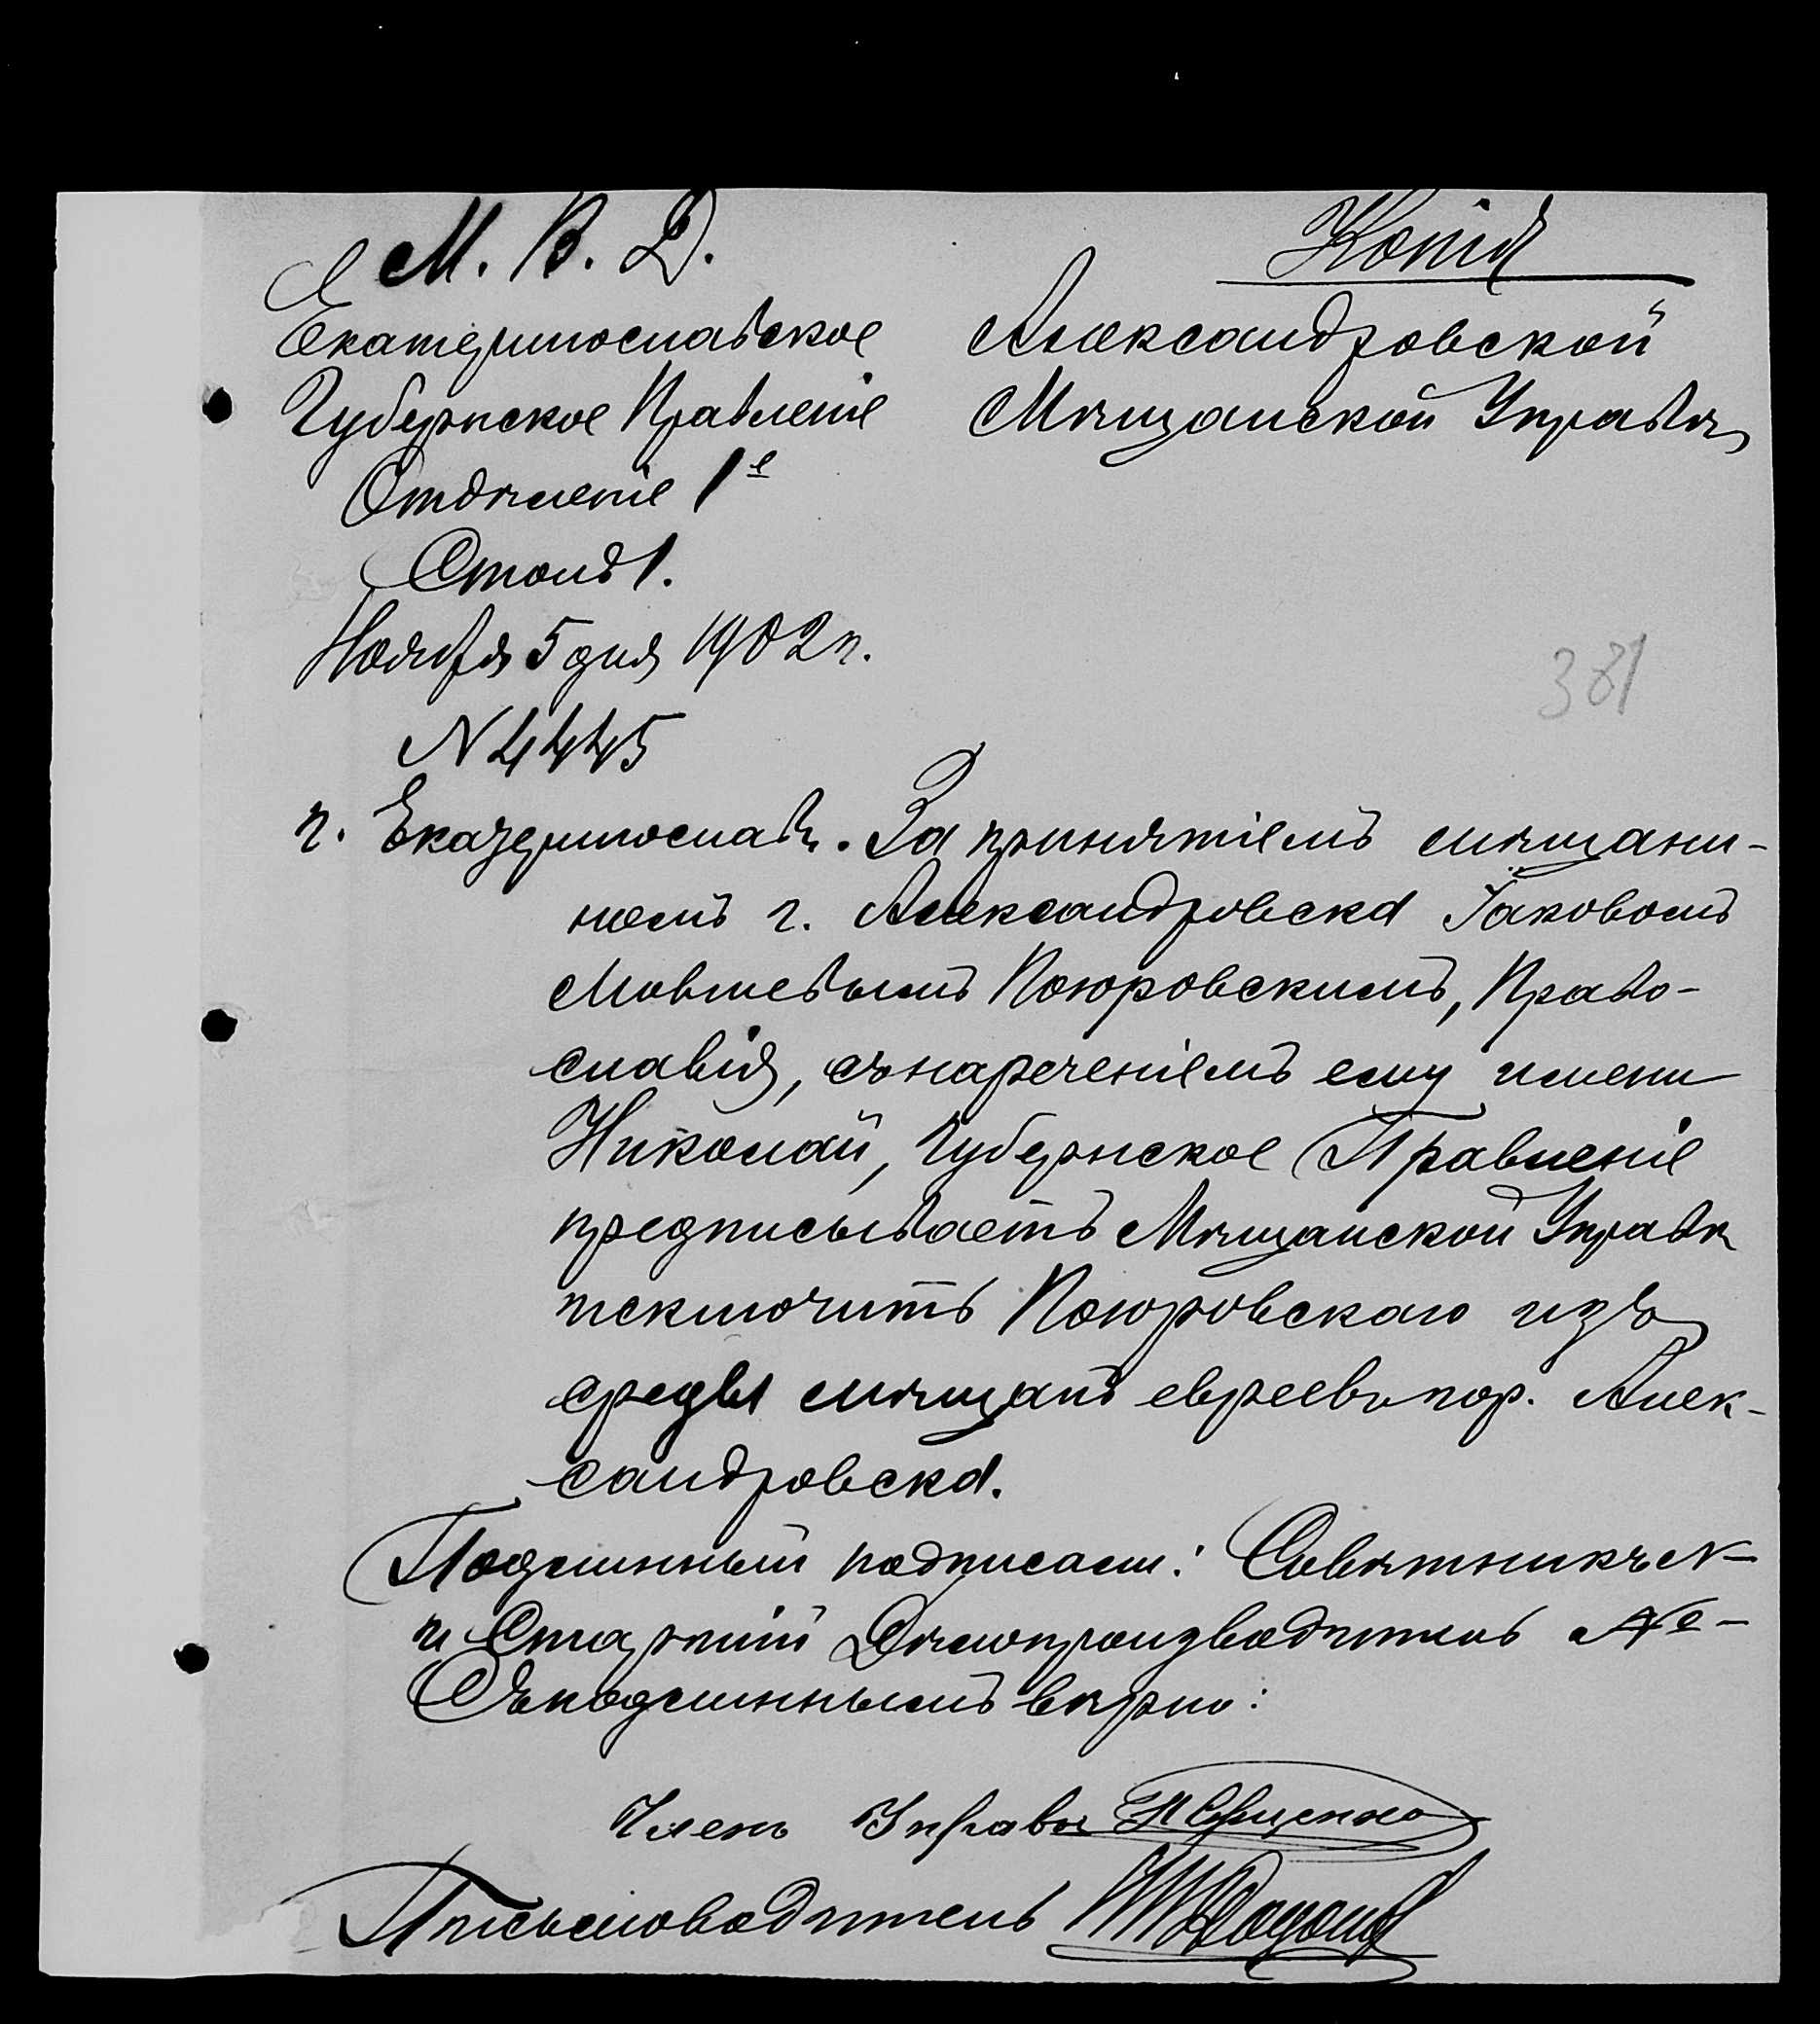 М. В. Д.
Екатеринославское
Губернское Правленіе
Отдѣленіе 1е
Столъ 1.
Ноября 5 дня 1902 г.
N 4445
г. Екатеринославъ.
Копія
Александровской
Мѣщанской Управѣ
381
За принятіемъ мѣщани-
номъ г. Александровска Іаковомъ
Мовшевымъ Поюровскимъ, Право-
славія, съ нареченіемъ ему имени
Николай, Губернское Правленіе
предписываетъ Мѣщанской Управѣ
исключить Поюровскаго изъ
среды мѣщанъ евреевъ гор. Алек-
сандровска.
Подлинный подписали: Совѣтникъ
и Старшій Дѣлопроизводитель
Съ подлиннымъ вѣрно:
Членъ Управы
Письмоводитель